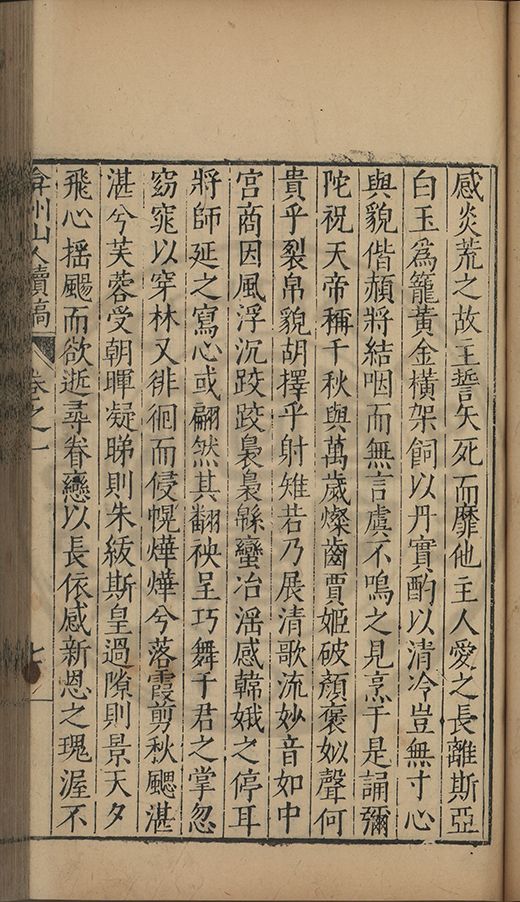 感炎荒之故主誓矢死而靡他主人愛之長離斯亞
白玉爲籠黃金橫架飼以丹實酌以清冷豈無寸心
與貌偕頳將結咽而無言虞不鳴之見烹于是誦彌
陀祝天帝稱千秋與萬歲燦齒賈姬破顏褒姒聲何
貴乎裂帛貌胡擇乎射雉若乃展清歌流妙音如中
宮商因風浮沉跤跤裊裊緜蠻冶滛感韓娥之停耳
將師延之寫心或翩然其翻袂呈巧舞于君之掌忽
窈窕以穿林又徘徊而侵幌燁燁兮落霞剪秋颸湛
湛兮芙蓉受朝暉凝睇則朱紱斯皇過隙則景天夕
飛心搖颺而欲逝尋眷戀以長依感新恩之瑰渥不
弇州山人續稿 卷之一 七